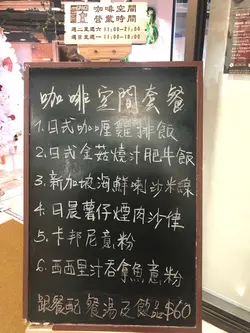 咖啡空間
營業時間
咖啡空間套餐
1.日式咖喱雞排飯
2.日式金菇燒汁肥牛飯
3.新加坡海鮮喇沙米線
4.日晨薯仔煙肉沙律
5.卡邦尼意粉
6.西西里汁吞拿魚意粉
跟餐配 餐湯及飲品$60